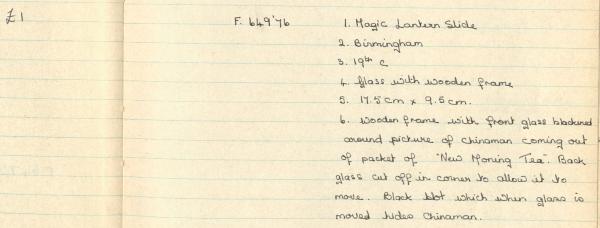 £1
F. 649'76
1. Magic Lantern Slide
2. Birmingham
3. 19th c
4. Glass with wooden frame
5. 17.5cm x 9.5cm.
6. Wooden frame with front glass blackened
around picture of chinaman coming out
of packet of "New Moning Tea". Back
glass cut off in corner to allow it to
move. Black blot which when glass is
moved hides Chinaman.